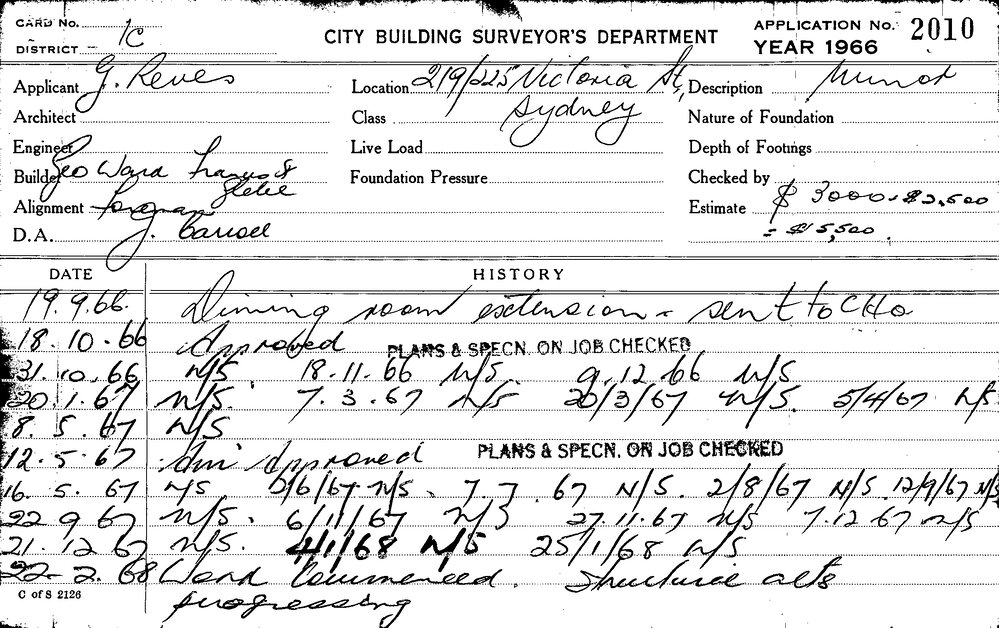 CARD No. 1C
DISTRICT
CITY BUILDING SURVEYOR'S DEPARTMENT
APPLICATION No. 2010
YEAR 1966
Applicant G. Reves
Location 219/225 Victoria St, Sydney
Description Minor
Architect
Class
Nature of Foundation
Engineer
Live Load
Depth of Footings
Builder Geo Ward Glebe
Foundation Pressure
Checked by
Alignment Longman
Estimate $ 3000. $2,500
= $15,500.
D.A. J.
DATE HISTORY
19.9.66. Dinning room extension - sent to CHO
18.10.66 Approved PLANS & SPECN. ON JOB CHECKED
31.10.66 N/S 18.11.66 N/S. 9.12.66 N/S
20.1.67 N/S. 7.3.67 N/S 20/3/67 N/S. 5/4/67 N/S.
8.5.67 N/S
12.5.67 Am Approved PLANS & SPECN. ON JOB CHECKED
16.5.67 N/S 2/6/67 N/S. 7.7.67 N/S. 2/8/67 N/S. 12/9/67 N/S
22.9.67 N/S. 6/11/67 N/S 27.11.67 N/S 7.12.67 N/S
21.12.67 N/S. 4/1/68 N/S 25/1/68 N/S
22-2.68 Commenced. Structural alts
progressing
C of S 2126